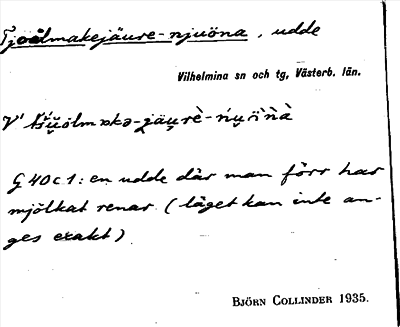 Tjoålmakejäure-njuöna, udde
Vilhelmina sn och tg, Västerb. län.
G 40 c 1: en udde där man förr har
mjölkat renar (läget kan inte an-
ges exakt)
BJÖRN COLLINDER 1935.